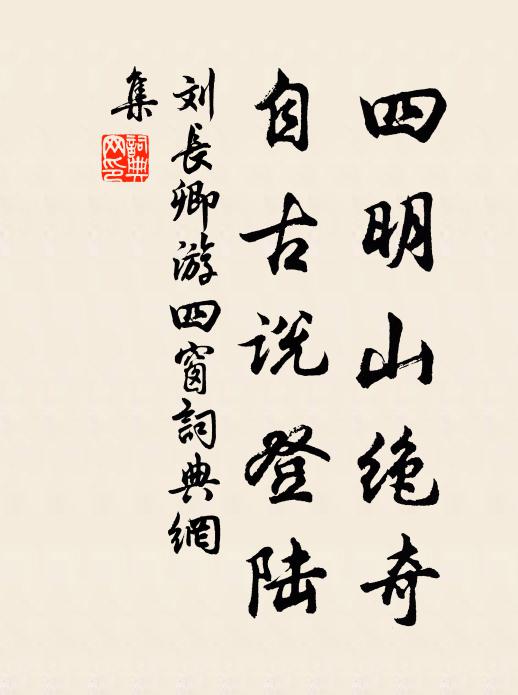 四明山绝奇
自古说登陆
刘長卿游四窗詞典網
集
詞典網印